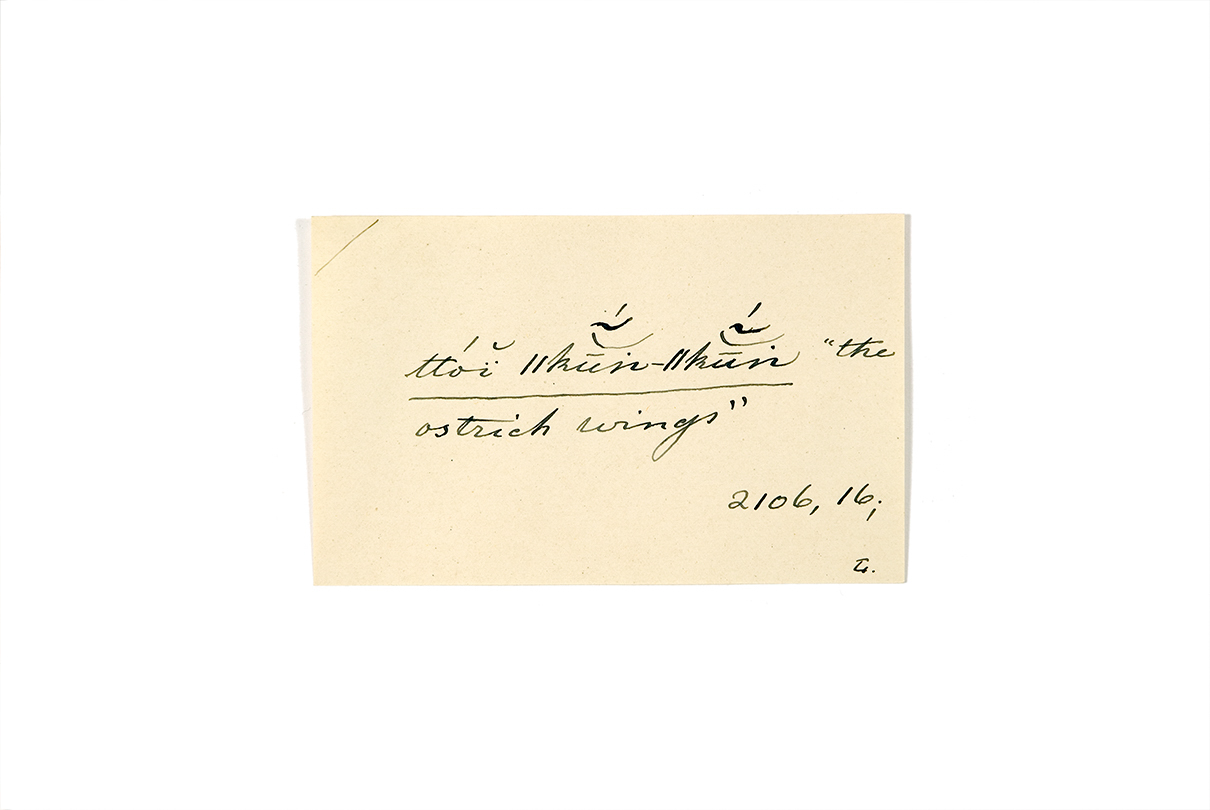 ttóĭ ǁkṹ̆n-ǁkṹ̆n “the
ostrich wings”
2106, 16;